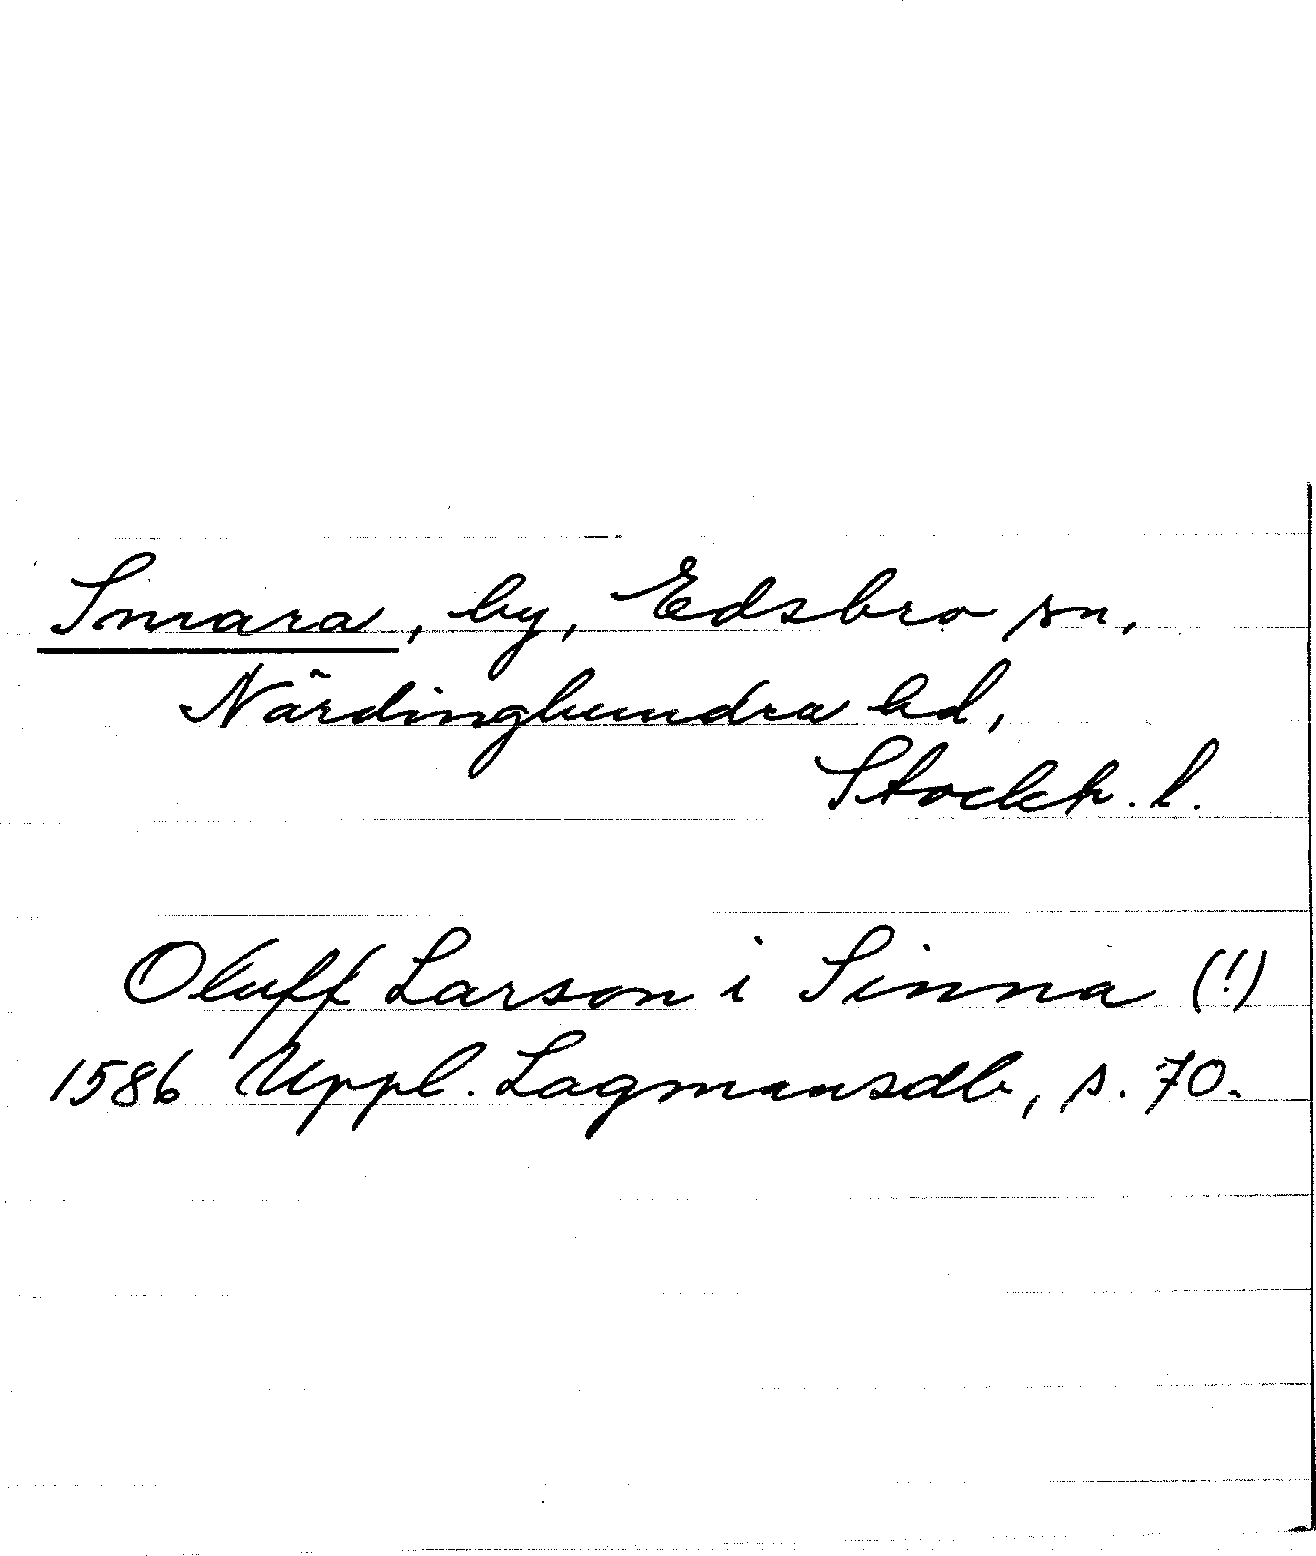 Smara, by, Edsbro sn,
Närdinghundra hd,
Stockh. l.
Oluff Larson i Sinna (!)
1586 Uppl. Lagmansdb, s. 70.